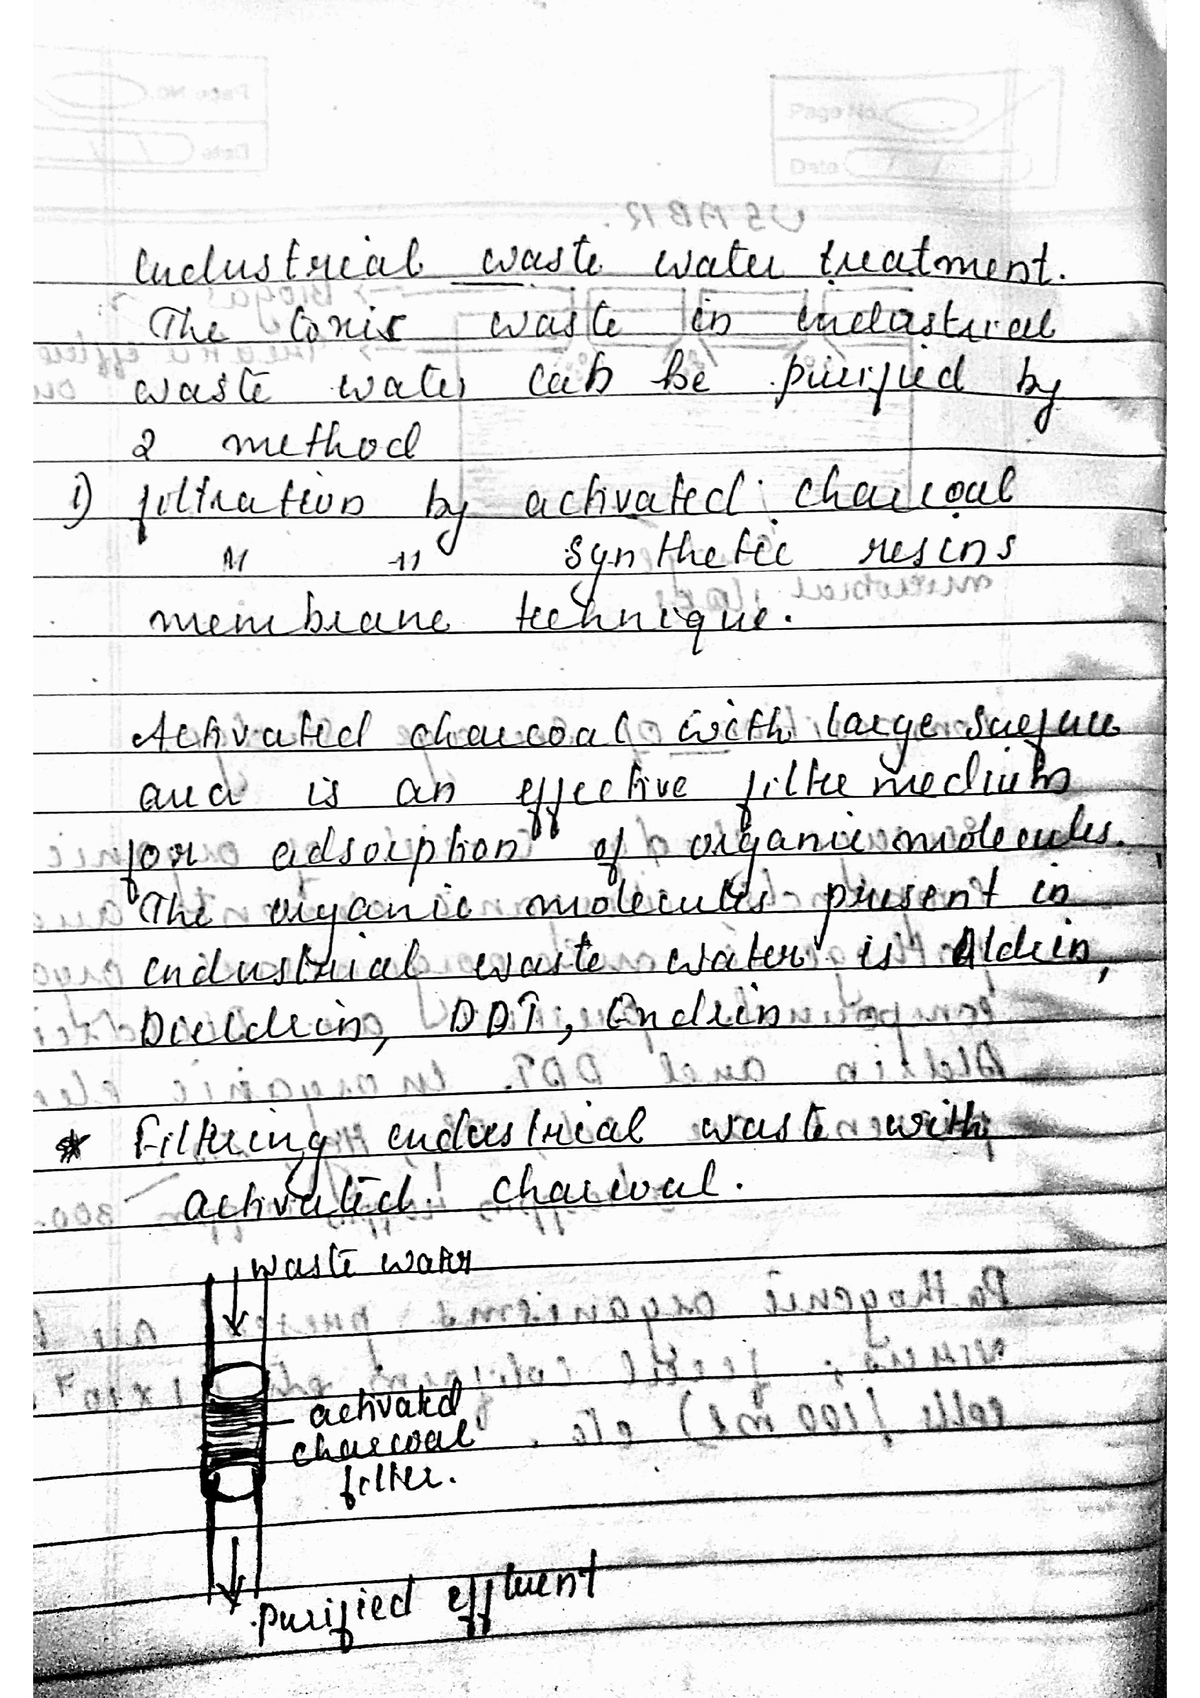 Page No.
Date
Industrial waste water treatment.
The toxic waste in industrial
waste water can be purified by
2 method
i) filtration by activated charcoal
" " synthetic resins
membrane technique.
Activated charcoal with large surface
and is an effective filtre medium
for adsorption of organic molecules.
The organic molecules present in
industrial waste water is Aldrin,
Dieldrin, DDT, Endrin
* Filtering industrial waste with
activated charcoal.
waste water
activated
charcoal
filter.
purified effluent